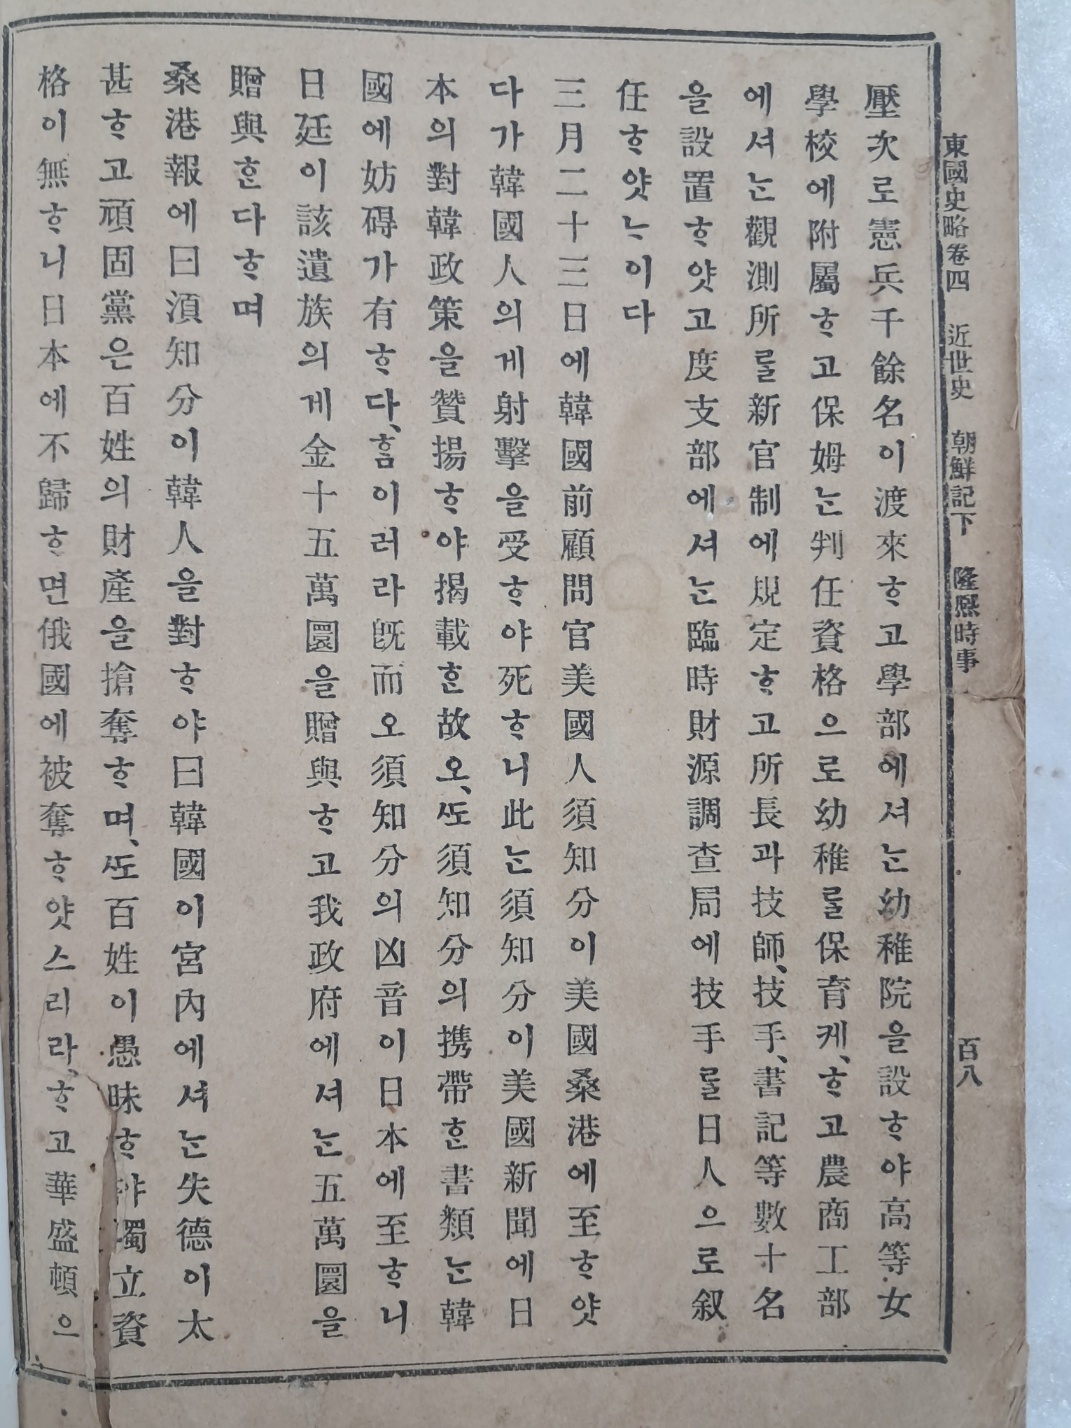 東國史略卷四 近世史 朝鮮記下 隆熙時事 百八
壓次로憲兵千餘名이渡來ᄒᆞ고學部에셔ᄂᆞᆫ幼稚院을設ᄒᆞ야高等女
學校에附屬ᄒᆞ고保姆ᄂᆞᆫ判任資格으로幼稚ᄅᆞᆯ保育케、ᄒᆞ고農商工部
에셔ᄂᆞᆫ觀測所ᄅᆞᆯ新官制에規定ᄒᆞ고所長과技師、技手、書記等數十名
을設置ᄒᆞ얏고度支部에셔ᄂᆞᆫ臨時財源調査局에技手ᄅᆞᆯ日人으로叙
任ᄒᆞ얏ᄂᆞ이다
三月二十三日에韓國前顧問官美國人須知分이美國桑港에至ᄒᆞ얏
다가韓國人의게射擊을受ᄒᆞ야死ᄒᆞ니此ᄂᆞᆫ須知分이美國新聞에日
本의對韓政策을贊揚ᄒᆞ야揭載ᄒᆞᆫ故오、ᄯᅩ須知分의携帶ᄒᆞᆫ書類ᄂᆞᆫ韓
國에妨碍가有ᄒᆞ다、ᄒᆞᆷ이러라旣而오須知分의凶音이日本에至ᄒᆞ니
日廷이該遺族의게金十五萬圜을贈與ᄒᆞ고我政府에셔ᄂᆞᆫ五萬圜을
贈與ᄒᆞᆫ다ᄒᆞ며
桑港報에曰湏知分이韓人을對ᄒᆞ야曰韓國이宮內에셔ᄂᆞᆫ失德이太
甚ᄒᆞ고頑固黨은百姓의財產을搶奪ᄒᆞ며、ᄯᅩ百姓이愚昧ᄒᆞ야獨立資
格이無ᄒᆞ니日本에不歸ᄒᆞ면俄國에被奪ᄒᆞ얏스리라、ᄒᆞ고華盛頓으